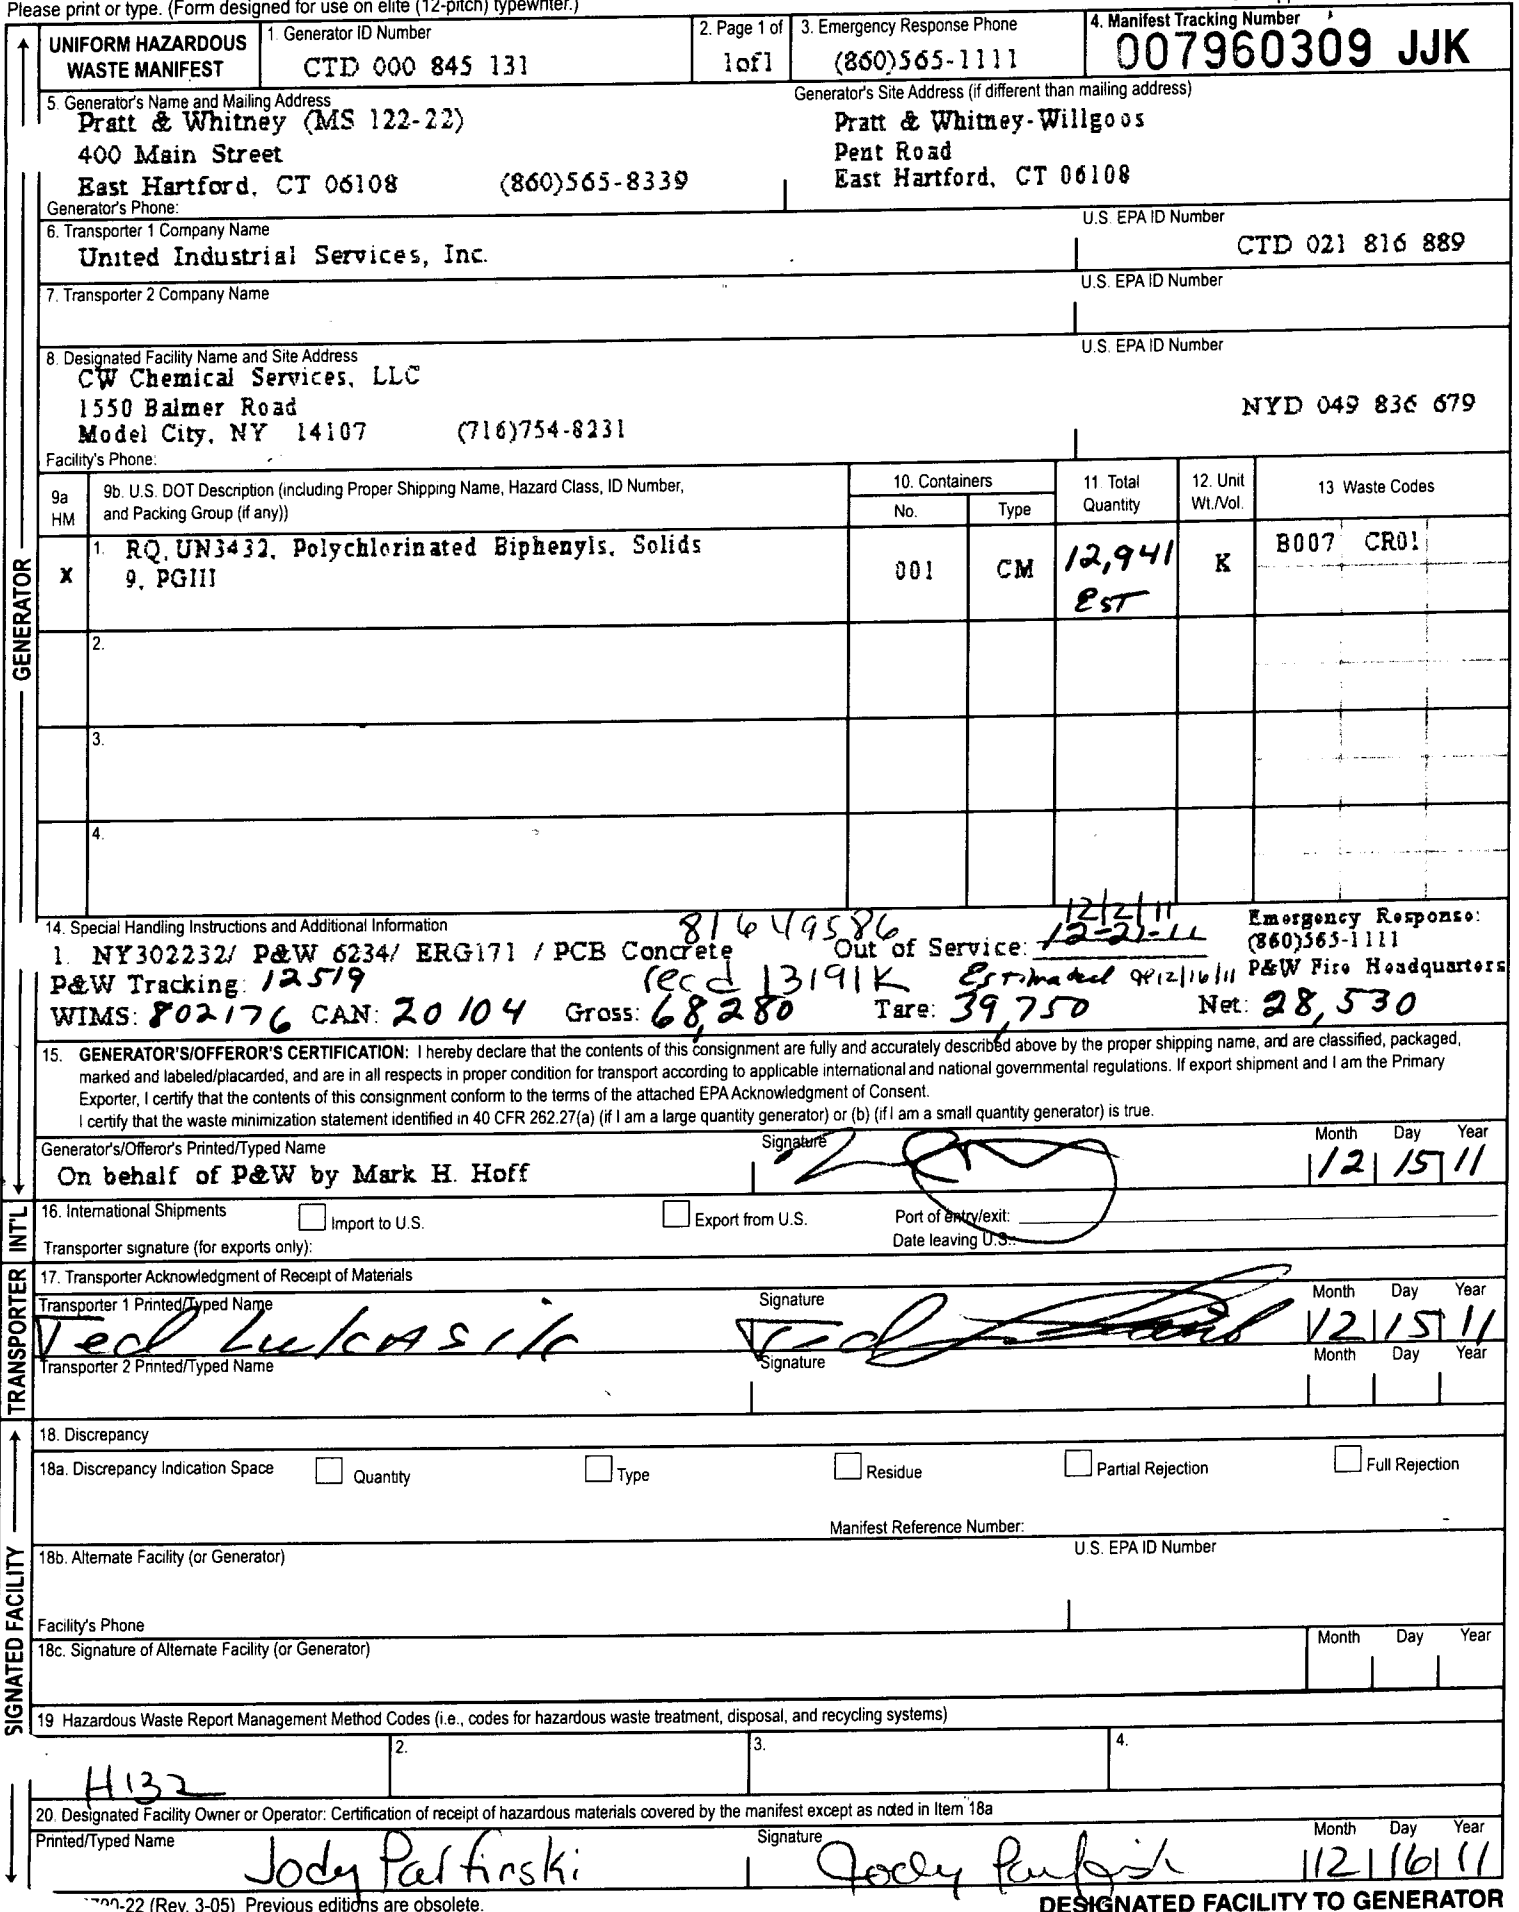 Please print or type. (Form designed for use on elite (12-pitch) typewriter.)
UNIFORM HAZARDOUS WASTE MANIFEST
1. Generator ID Number
CTD 000 845 131
2. Page 1 of
1of1
3. Emergency Response Phone
(860)565-1111
4. Manifest Tracking Number
007960309 JJK
5. Generator's Name and Mailing Address
Generator's Site Address (if different than mailing address)
Pratt & Whitney (MS 122-22)
Pratt & Whitney-Willgoos
400 Main Street
Pent Road
East Hartford, CT 06108 (860)565-8339
East Hartford, CT 06108
Generator's Phone:
6. Transporter 1 Company Name
U.S. EPA ID Number
United Industrial Services, Inc.
CTD 021 816 889
7. Transporter 2 Company Name
U.S. EPA ID Number
8. Designated Facility Name and Site Address
U.S. EPA ID Number
CW Chemical Services, LLC
1550 Balmer Road
NYD 049 836 679
Model City, NY 14107 (716)754-8231
Facility's Phone:
9a HM
9b. U.S. DOT Description (including Proper Shipping Name, Hazard Class, ID Number, and Packing Group (if any))
10. Containers
No.
Type
11. Total Quantity
12. Unit Wt./Vol.
13 Waste Codes
X
1. RQ, UN3432, Polychlorinated Biphenyls, Solids
9, PGIII
001
CM
12,941
EST
K
B007 CR01
2.
3.
4.
GENERATOR
14. Special Handling Instructions and Additional Information
816449586
12/2/11
Emergency Response:
1. NY302232/ P&W 6234/ ERG171 / PCB Concrete
Out of Service: 12-21-11
(860)565-1111
P&W Tracking: 12519
recd 13191K
Estimated
12/16/11
P&W Fire Headquarters
WIMS: 802176 CAN: 20104 Gross: 68,280 Tare: 39,750 Net: 28,530
15. GENERATOR'S/OFFEROR'S CERTIFICATION: I hereby declare that the contents of this consignment are fully and accurately described above by the proper shipping name, and are classified, packaged,
marked and labeled/placarded, and are in all respects in proper condition for transport according to applicable international and national governmental regulations. If export shipment and I am the Primary
Exporter, I certify that the contents of this consignment conform to the terms of the attached EPA Acknowledgment of Consent.
I certify that the waste minimization statement identified in 40 CFR 262.27(a) (if I am a large quantity generator) or (b) (if I am a small quantity generator) is true.
Generator's/Offeror's Printed/Typed Name
Signature
Month Day Year
On behalf of P&W by Mark H. Hoff
12 15 11
INT'L
16. International Shipments
Import to U.S.
Export from U.S.
Port of entry/exit:
Transporter signature (for exports only):
Date leaving U.S.:
TRANSPORTER
17. Transporter Acknowledgment of Receipt of Materials
Transporter 1 Printed/Typed Name
Signature
Month Day Year
Ted Lukasik
Ted
12 15 11
Transporter 2 Printed/Typed Name
Signature
Month Day Year
SIGNATED FACILITY
18. Discrepancy
18a. Discrepancy Indication Space
Quantity
Type
Residue
Partial Rejection
Full Rejection
Manifest Reference Number:
18b. Alternate Facility (or Generator)
U.S. EPA ID Number
Facility's Phone
18c. Signature of Alternate Facility (or Generator)
Month Day Year
19 Hazardous Waste Report Management Method Codes (i.e., codes for hazardous waste treatment, disposal, and recycling systems)
H132
2.
3.
4.
20. Designated Facility Owner or Operator: Certification of receipt of hazardous materials covered by the manifest except as noted in Item 18a
Printed/Typed Name
Signature
Month Day Year
Jody Parfinski
Jody
12 16 11
-22 (Rev. 3-05) Previous editions are obsolete.
DESIGNATED FACILITY TO GENERATOR